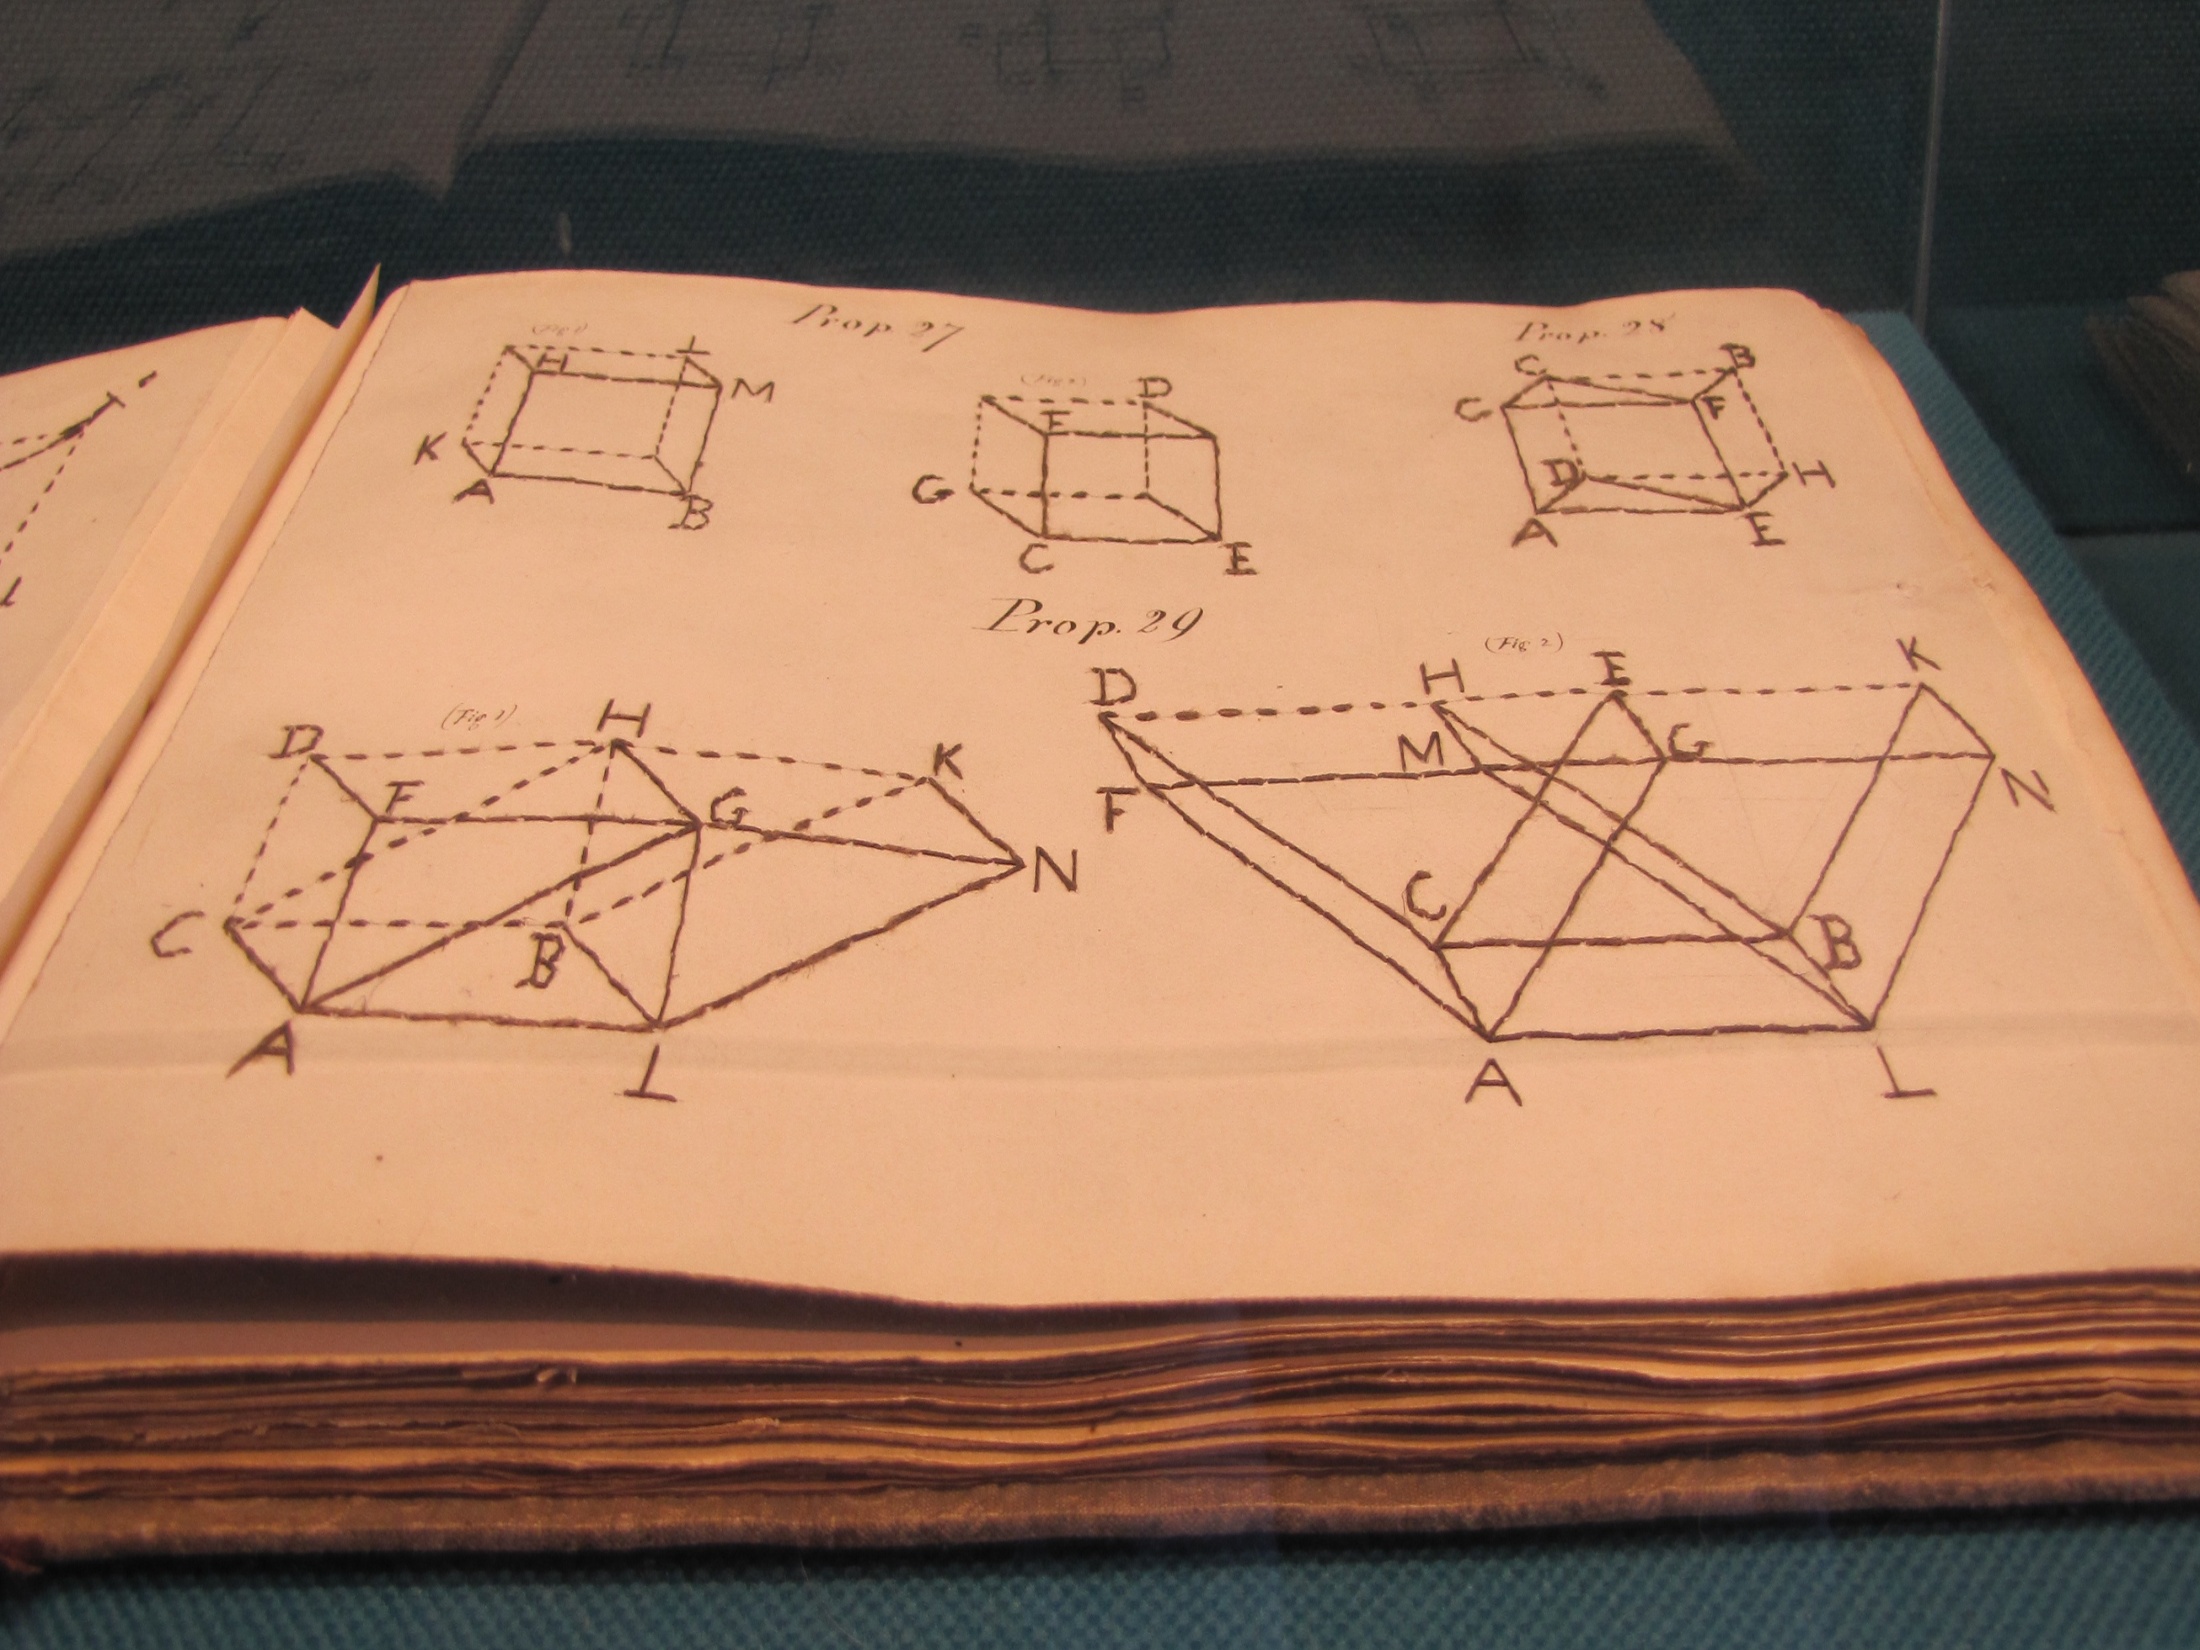 Prop. 27
Prop. 28
(Fig 1)
H L
M
K
A
B
D
F
G
C
E
C B
G F
D H
A E
Prop. 29
(Fig. 1)
D H
F G K
N
C B
A L
(Fig. 2)
D H E K
M G
F N
C B
A L